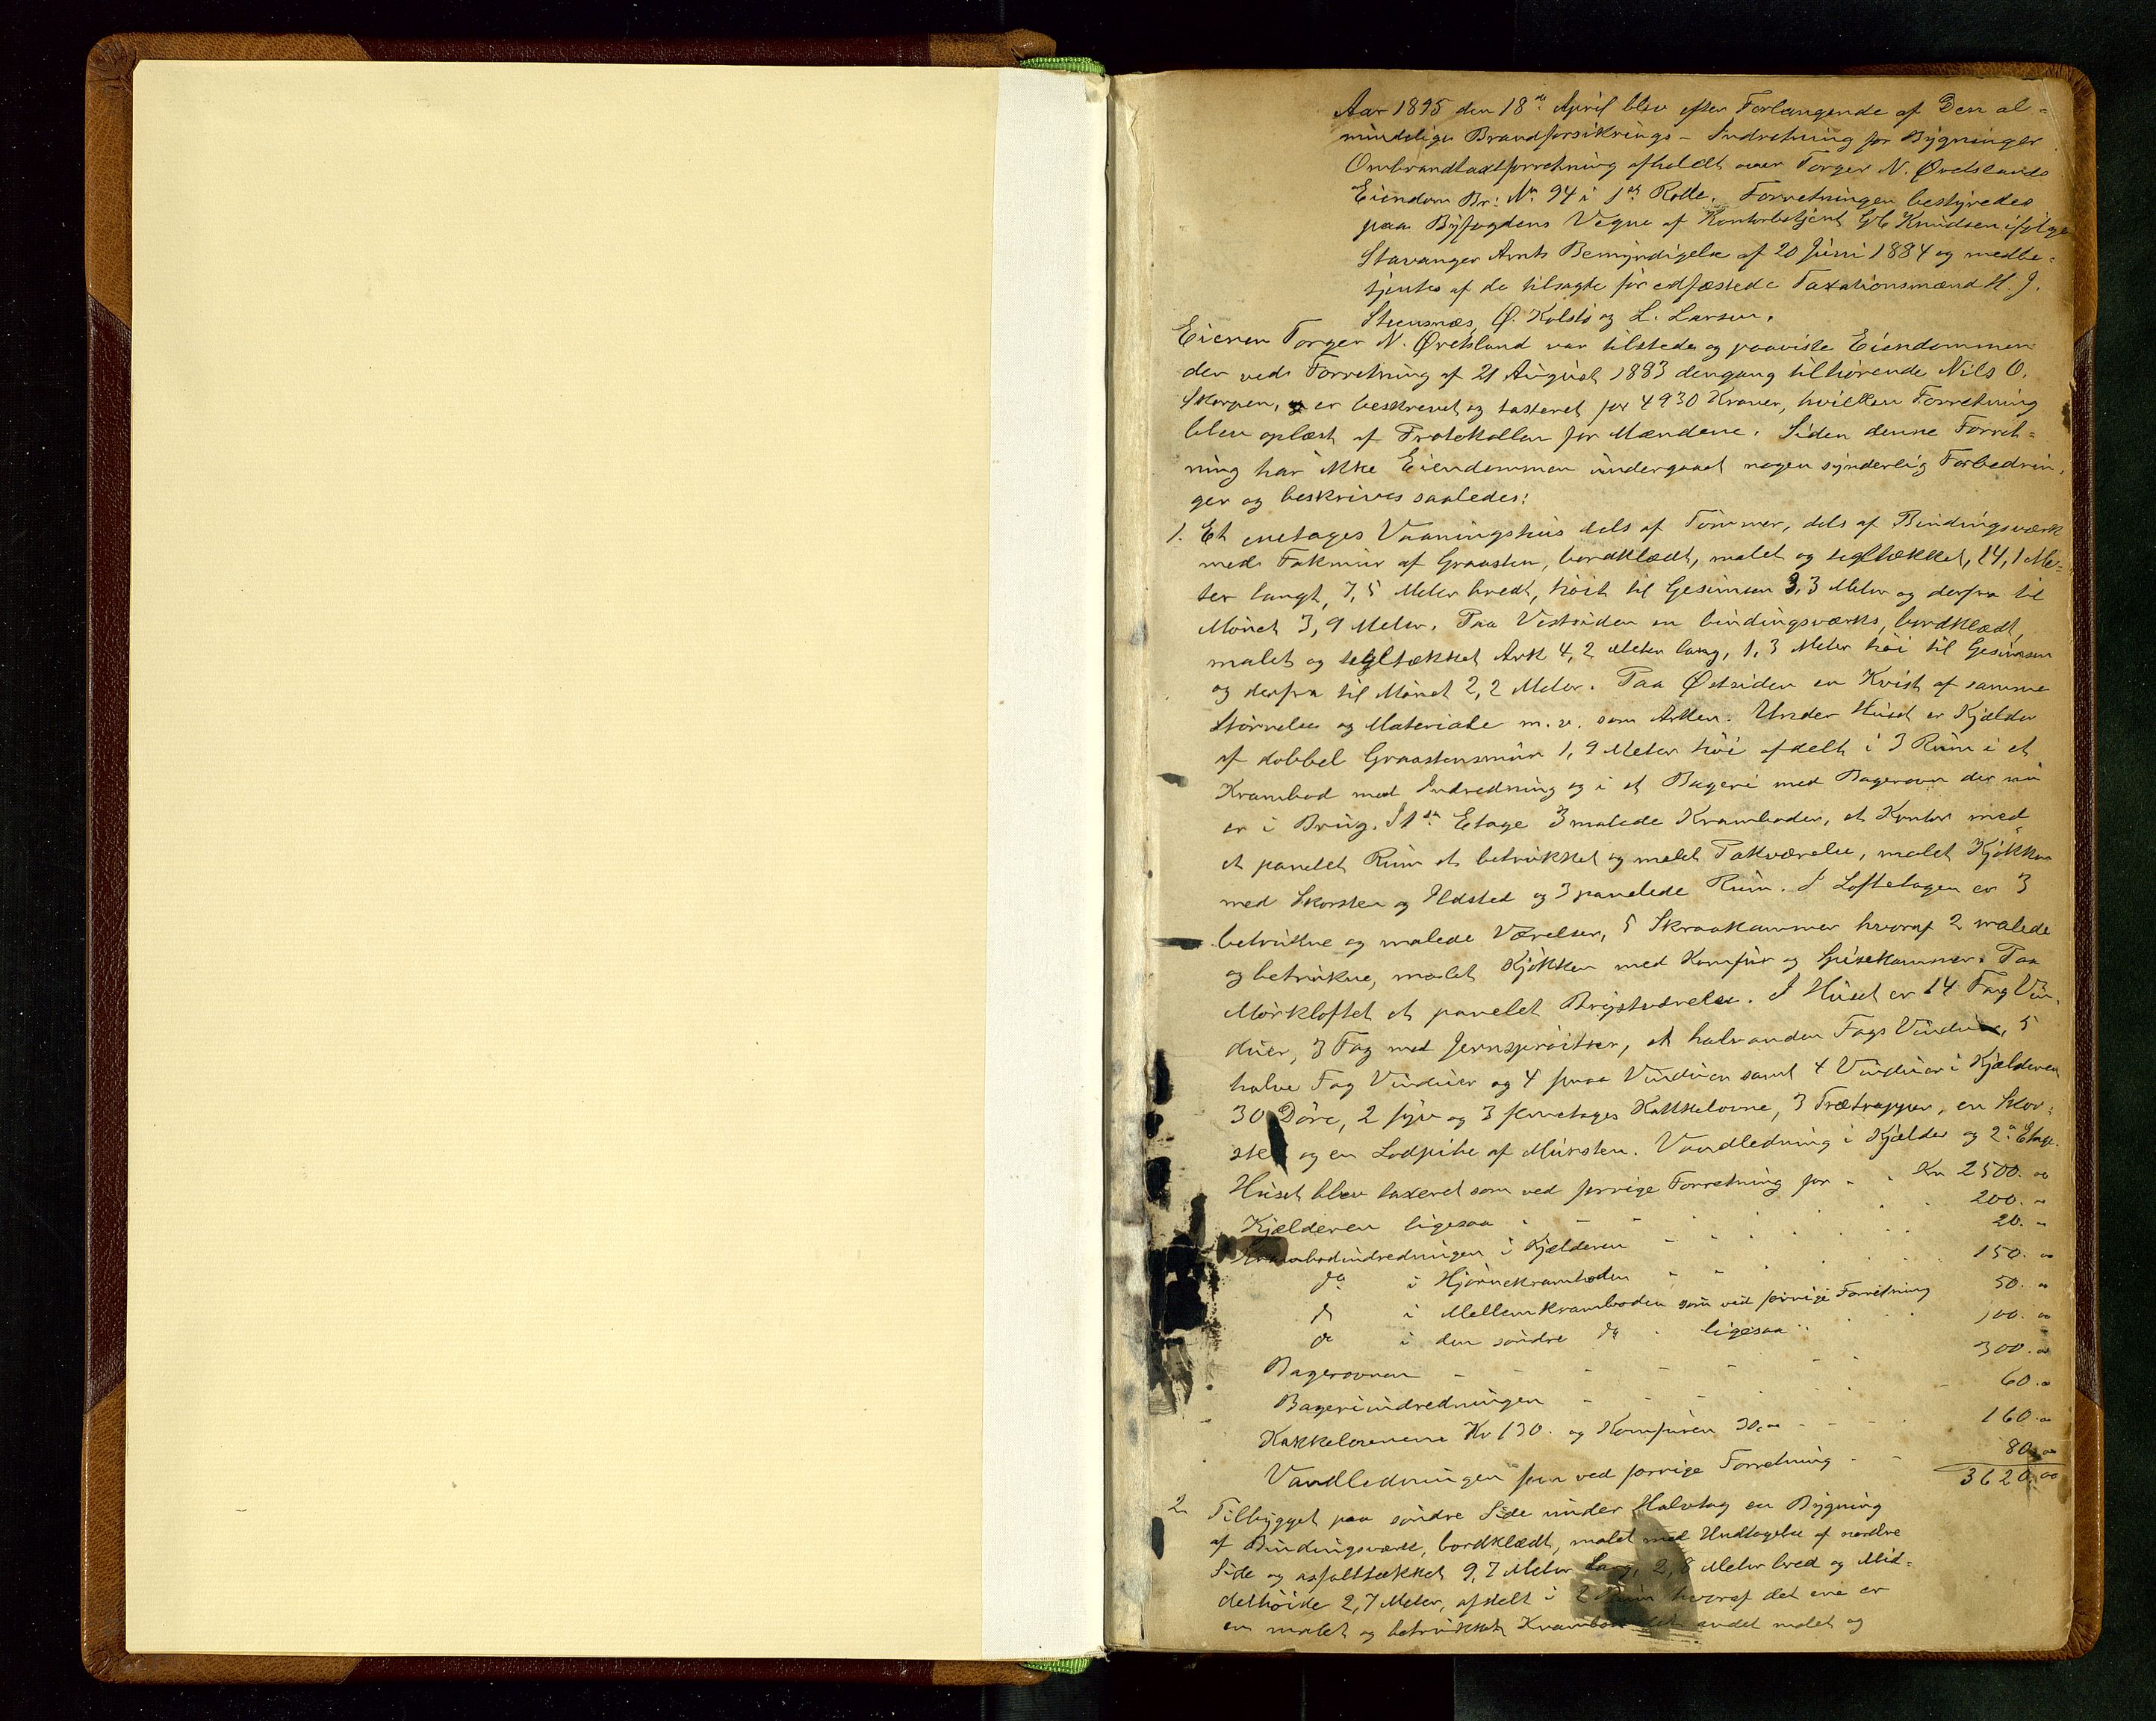 Aar 1895 den 18de April blev efter Forlangende af Den al-
mindelige Brandforsikrings-Indretning for Bygninger
Ombrandtaxtforretning afholdt over Torger N. Øvestands
Eiendom Br: No 94 i 1ste Rotte. Forretningen bestyredes
paa Byfogdens Vegne af Kontorbetjent Knudsen ifølge
Stavanger Amts Bemyndigelse af 20 Juni 1884 og medbe-
tjentes af de tilsagte før edfæstede Taxationsmænd H. J.
Steensnæs, Ø. Kolstø og L. Larsen.
Eieren Torger N. Øvestand var tilstede og paaviste Eiendommen
der ved Forretning af 21 August 1883 dengang tilhørende Nils O.
Skorpen, er beskrevet og taxeret for 4930 Kroner, hvilken Forretning
blev oplæst af Protokollen for Mændene. Siden denne Forret-
ning har ikke Eiendommen undergaaet nogen synderlig Forbedrin-
ger og beskrives saaledes:
1. Et enetages Vaaningshus dels af Tømmer, dels af Bindingsværk
med Fakmur af Graasten, bordklædt, malet og tegltækket, 14,1 Me-
ter langt, 7,5 Meter bredt, høit til Gesimsen 3,3 Meter og derfra til
Mønet 3,9 Meter. Paa Vestsiden en bindingsværks, bordklædt,
malet og tegltækket Ark 4,2 Meter lang, 1,3 Meter høi til Gesimsen
og derfra til Mønet 2,2 Meter. Paa Østsiden en Kvist af samme
Størrelse og Materiale m. v. som Arken. Under Huset er Kjælder
af dobbel Graastensmur 1,9 Meter høi afdelt i 3 Rum i et
Krambod med Indredning og i et Bageri med Bagerovn der nu
er i Brug. I 1ste Etage 3 malede Kramboder, et Kontor med
et panelet Rum et betrukket og malet Takværelse, malet Kjøkken
med Skorsten og Ildsted og 3 panelede Rum. I Loftetagen er 3
betrukne og malede Værelser, 5 Skraakammer hvoraf 2 malede
og betrukne, malet Kjøkken med Komfur og Spisekammer. Paa
Mørkloftet et panelet Brystværelse. I Huset er 14 Fag Vin-
duer, 3 Fag med Jernsproitser, et halvanden Fags Vindue, 5
halve Fag Vinduer og 4 smaa Vinduer samt 4 Vinduer i Kjælderen
30 Døre, 2 fyr og 3 fleretages Kakkelovne, 3 Trætrapper, en Skor-
sten og en Lodpibe af Mursten. Vandledning i Kjælder og 2den Etage.
Huset blev taxeret som ved forrige Forretning for - - Kr 2500. 00
Kjælderen ligesaa - - - - 200. -
Krambodindredningen i Kjælderen - - - 20. -
do i Hjørnekramboden - - - 150. 00
do i Mellemkramboden som ved forrige Forretning 50. 00
do i den søndre do - ligesaa - 100. 00
Bagerovnen - - - - 300. 00
Bageriindredningen - - - - 60. 00
Kakkelovnene Kr 130. og Komfuren 30,00 - - - 160. 00
Vandledningen som ved forrige Forretning - - 80. 00
3620. 00
2. Tilbygget paa søndre Side under Halvtag en Bygning
af Bindingsværk, bordklædt, malet med Undtagelse af nordre
Side og asfalttækket 9,7 Meter lang, 2,8 Meter bred og Mid-
delhøide 2,7 Meter, afdelt i 2 Rum hvoraf det ene er
en malet og betrukket Krambod det andet malet og